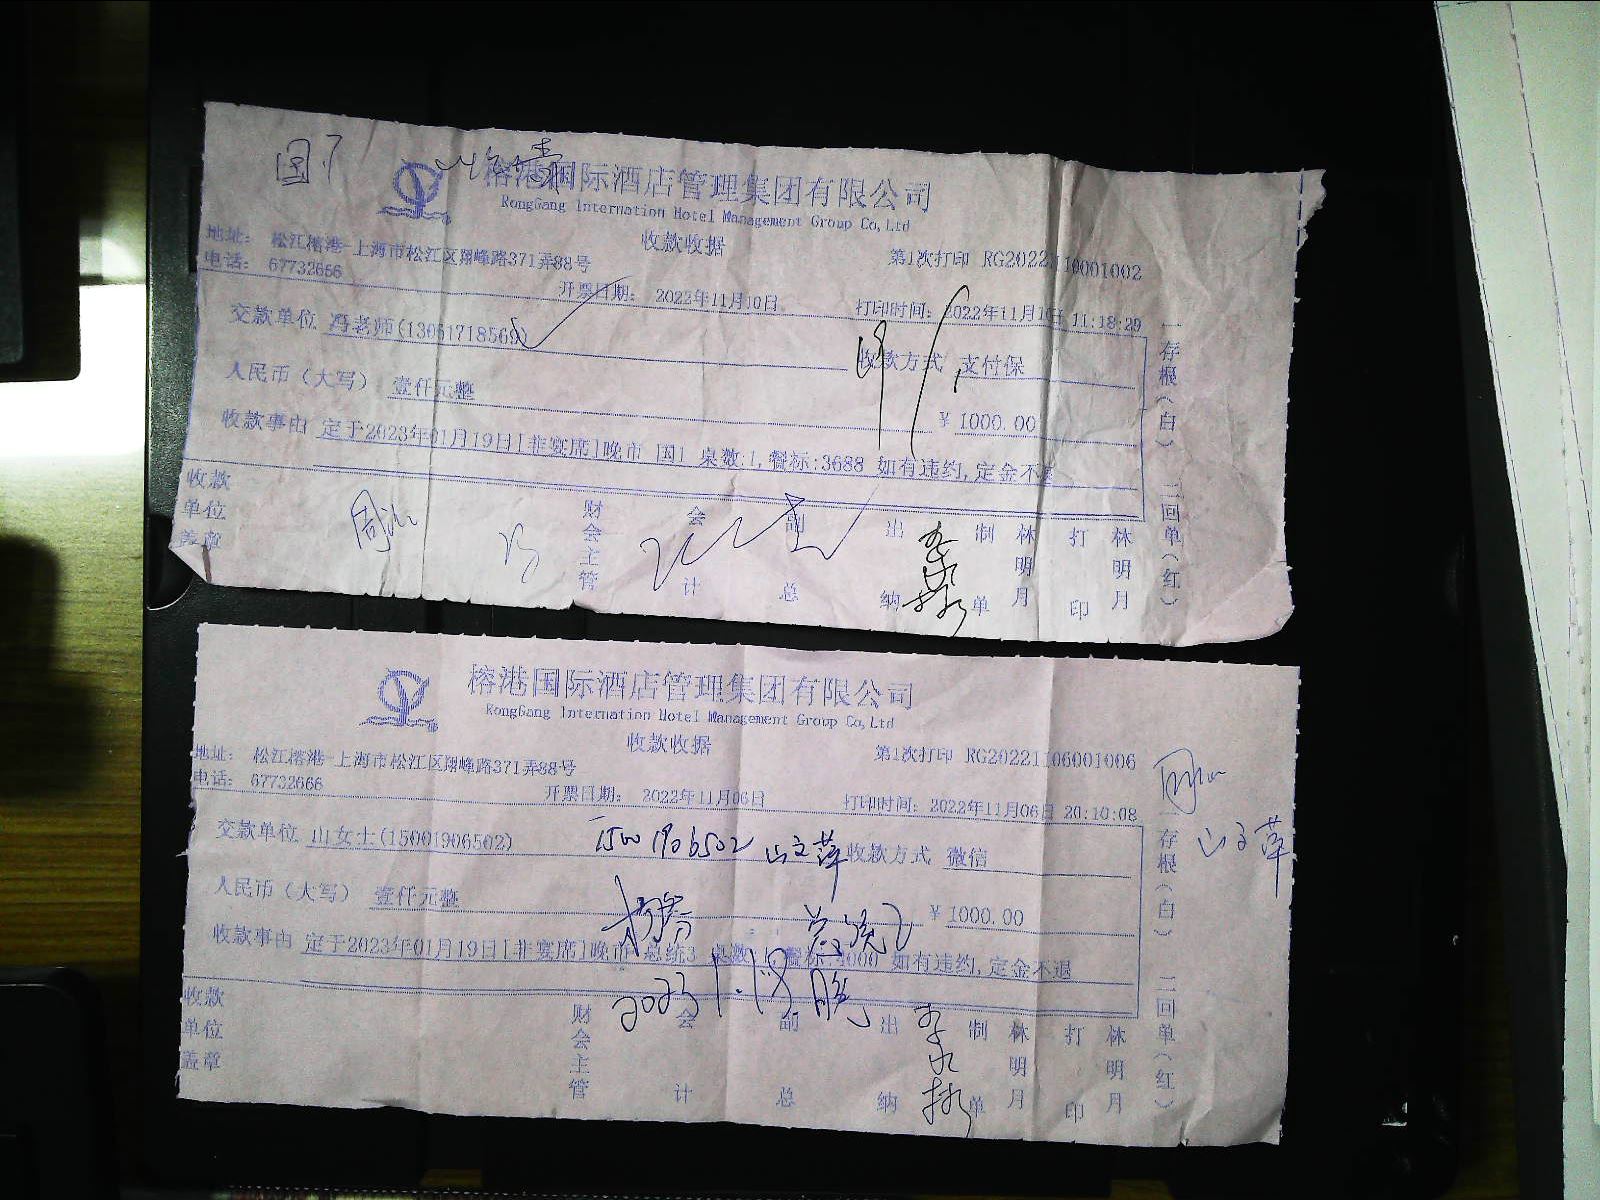 国.7
榕港国际酒店管理集团有限公司
RongGang Internation Hotel Management Group Co,Ltd
收款收据
地址: 松江榕港-上海市松江区翔峰路371弄88号
第1次打印 RG20221110001002
电话: 67732666
开票日期: 2022年11月10日
打印时间: 2022年11月10日 11:18:29
交款单位 冯老师(13061718569)
收款方式 支付保
人民币(大写) 壹仟元整
¥ 1000.00
收款事由 定于2023年01月19日[非宴席]晚市 国1 桌数:1,餐标:3688 如有违约,定金不退
收款单位盖章
财会主管
会计
副总
出纳
制单 林明月
打印 林明月
一存根(白) 二回单(红)
榕港国际酒店管理集团有限公司
RongGang Internation Hotel Management Group Co,Ltd
收款收据
地址: 松江榕港-上海市松江区翔峰路371弄88号
第1次打印 RG20221106001006
电话: 67732666
开票日期: 2022年11月06日
打印时间: 2022年11月06日 20:10:08
交款单位 山女士(15001906502)
15001906502 山文萍
收款方式 微信
山文萍
人民币(大写) 壹仟元整
¥ 1000.00
收款事由 定于2023年01月19日[非宴席]晚市 总统3 桌数:1,餐标:4000 如有违约,定金不退
2023 1.18 晚
收款单位盖章
财会主管
会计
副总
出纳
制单 林明月
打印 林明月
一存根(白) 二回单(红)